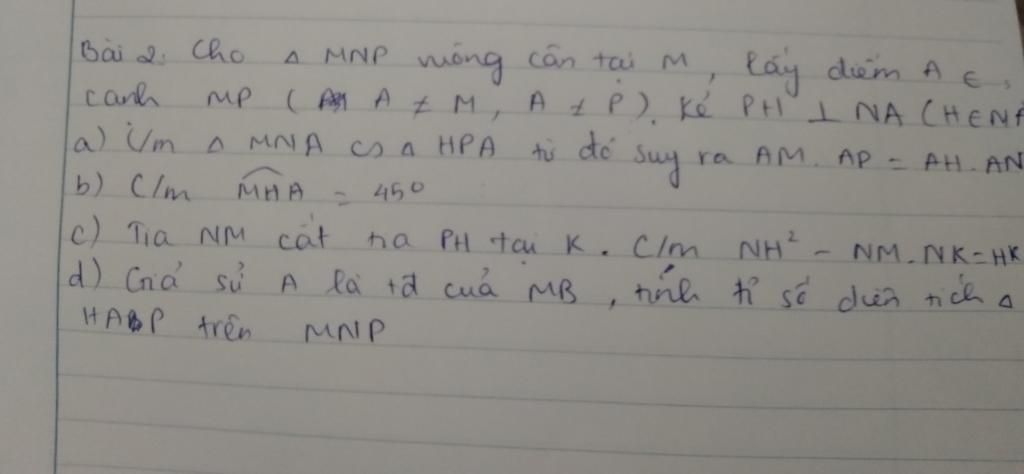 Bài 2. Cho Δ MNP vuông cân tại M, lấy điểm A ∈
cạnh MP ( A ≠ M, A ≠ P). Kẻ PH ⊥ NA (H∈NA
a) C/m Δ MNA ∽ Δ HPA từ đó suy ra AM. AP = AH. AN
b) C/m MHA = 45°
c) Tia NM cắt tia PH tại K. C/m NH² - NM. NK = HK
d) Giả sử A là tđ của MB, tính tỉ số diện tích Δ
HAP trên MNP